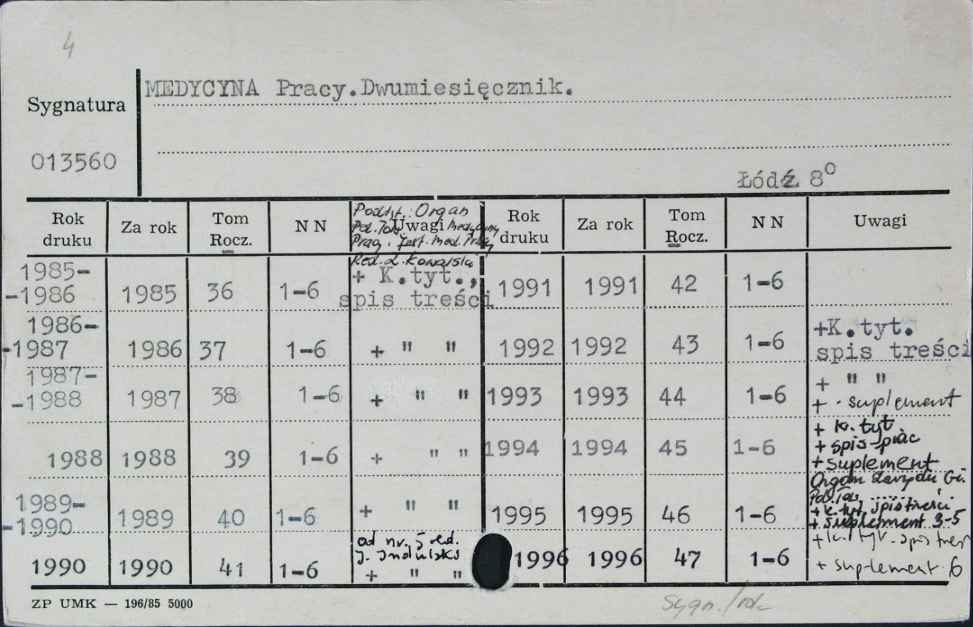 4
MEDYCYNA Pracy.Dwumiesięcznik.
Sygnatura
013560
Łódź 8°
Rok druku Za rok Tom Rocz. N N Uwagi Rok druku Za rok Tom Rocz. N N Uwagi
Podtyt. Organ
Pol. Tow. Medycyny
Pracy i Inst. med. Pracy
Red.
1985-
-1986 1985 36 1-6 + K.tyt., spis treści 1991 1991 42 1-6
1986-
-1987 1986 37 1-6 + " " 1992 1992 43 1-6 +K.tyt. spis treści
1987-
-1988 1987 38 1-6 + " " 1993 1993 44 1-6 + " "
+ suplement
1988 1988 39 1-6 + " " 1994 1994 45 1-6 + k.tyt
+ spis prac
+ suplement
1989-
-1990 1989 40 1-6 + " " 1995 1995 46 1-6 Organ Zarządu Gł.
Pol. Tow.
+ k.tyt. spis treści
+ suplement 3-5
od nr. 5 red.
J. Indulski
1990 1990 41 1-6 + " " 1996 1996 47 1-6 + k. tyt. spis treś
+ suplement 6
ZP UMK — 196/85 5000
Sygn./rok